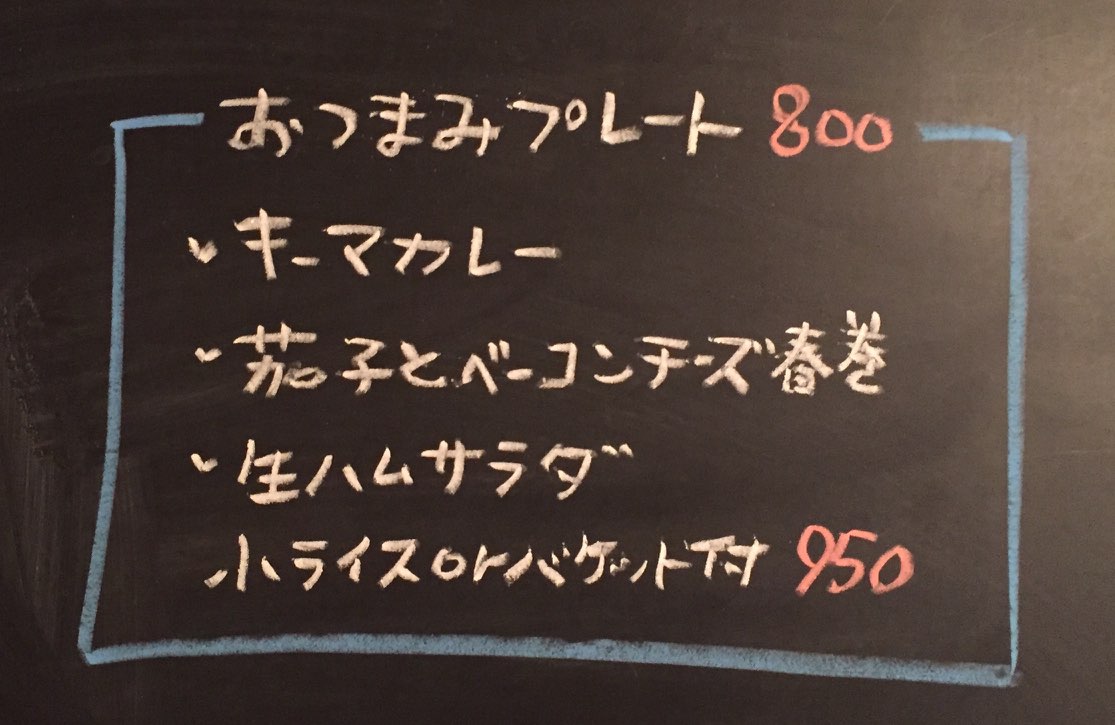 おつまみプレート 800
・キーマカレー
・茄子とベーコンチーズ春巻
・生ハムサラダ
小ライスorバゲット付 950